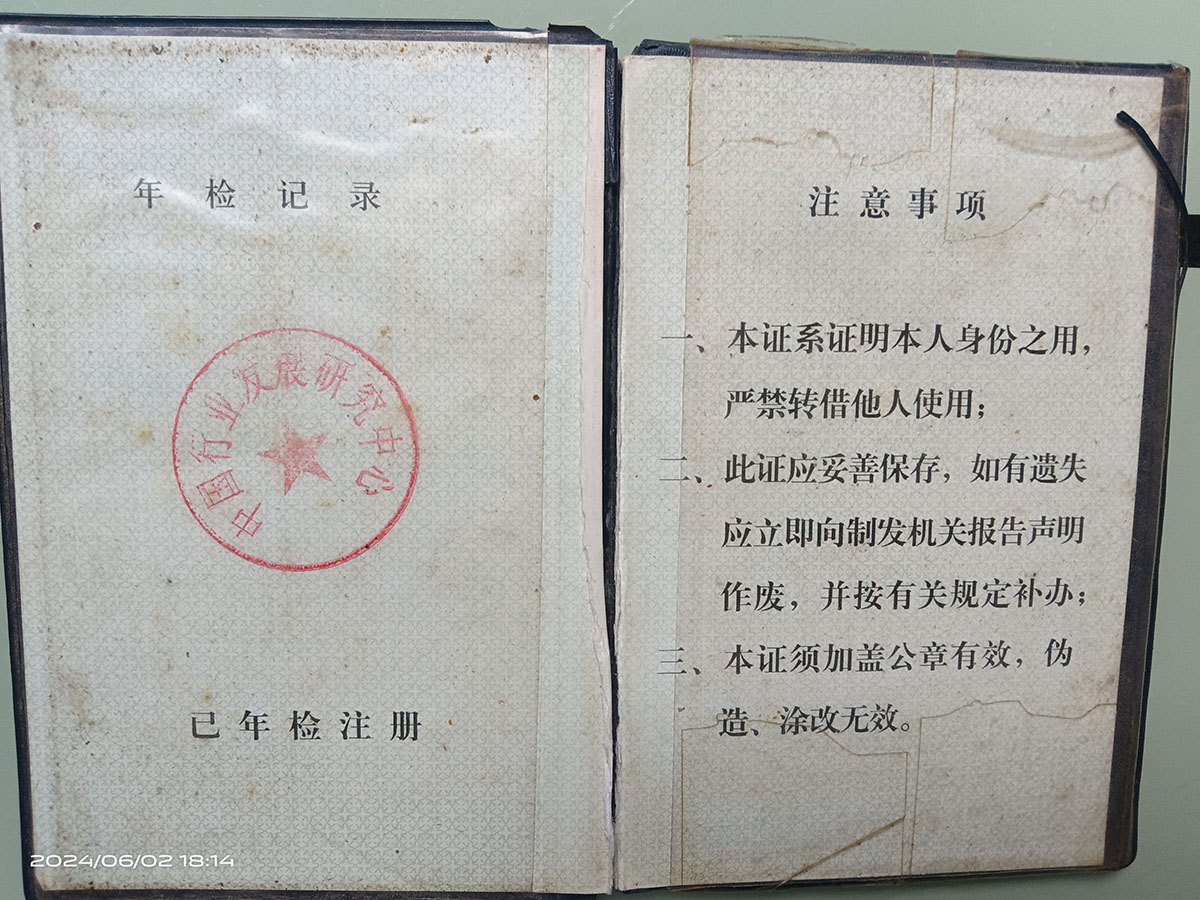 年检记录
中国行业发展研究中心
已年检注册
2024/06/02 18:14
注意事项
一、本证系证明本人身份之用，
严禁转借他人使用；
二、此证应妥善保存，如有遗失
应立即向制发机关报告声明
作废，并按有关规定补办；
三、本证须加盖公章有效，伪
造、涂改无效。